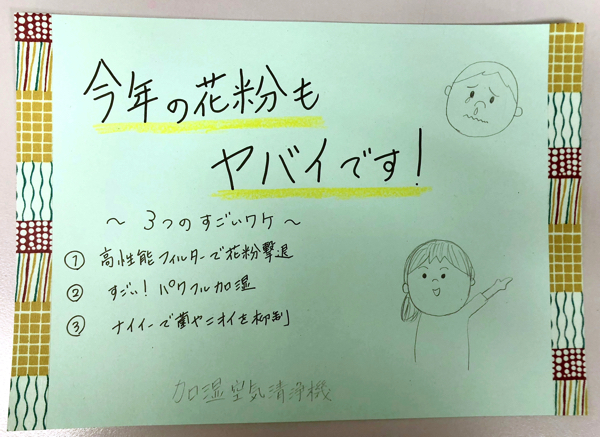 今年の花粉も
ヤバイです!
～3つのすごいワケ～
① 高性能フィルターで花粉撃退
② すごい!パワフル加湿
③ ナイイーで菌やニオイを抑制
加湿空気清浄機